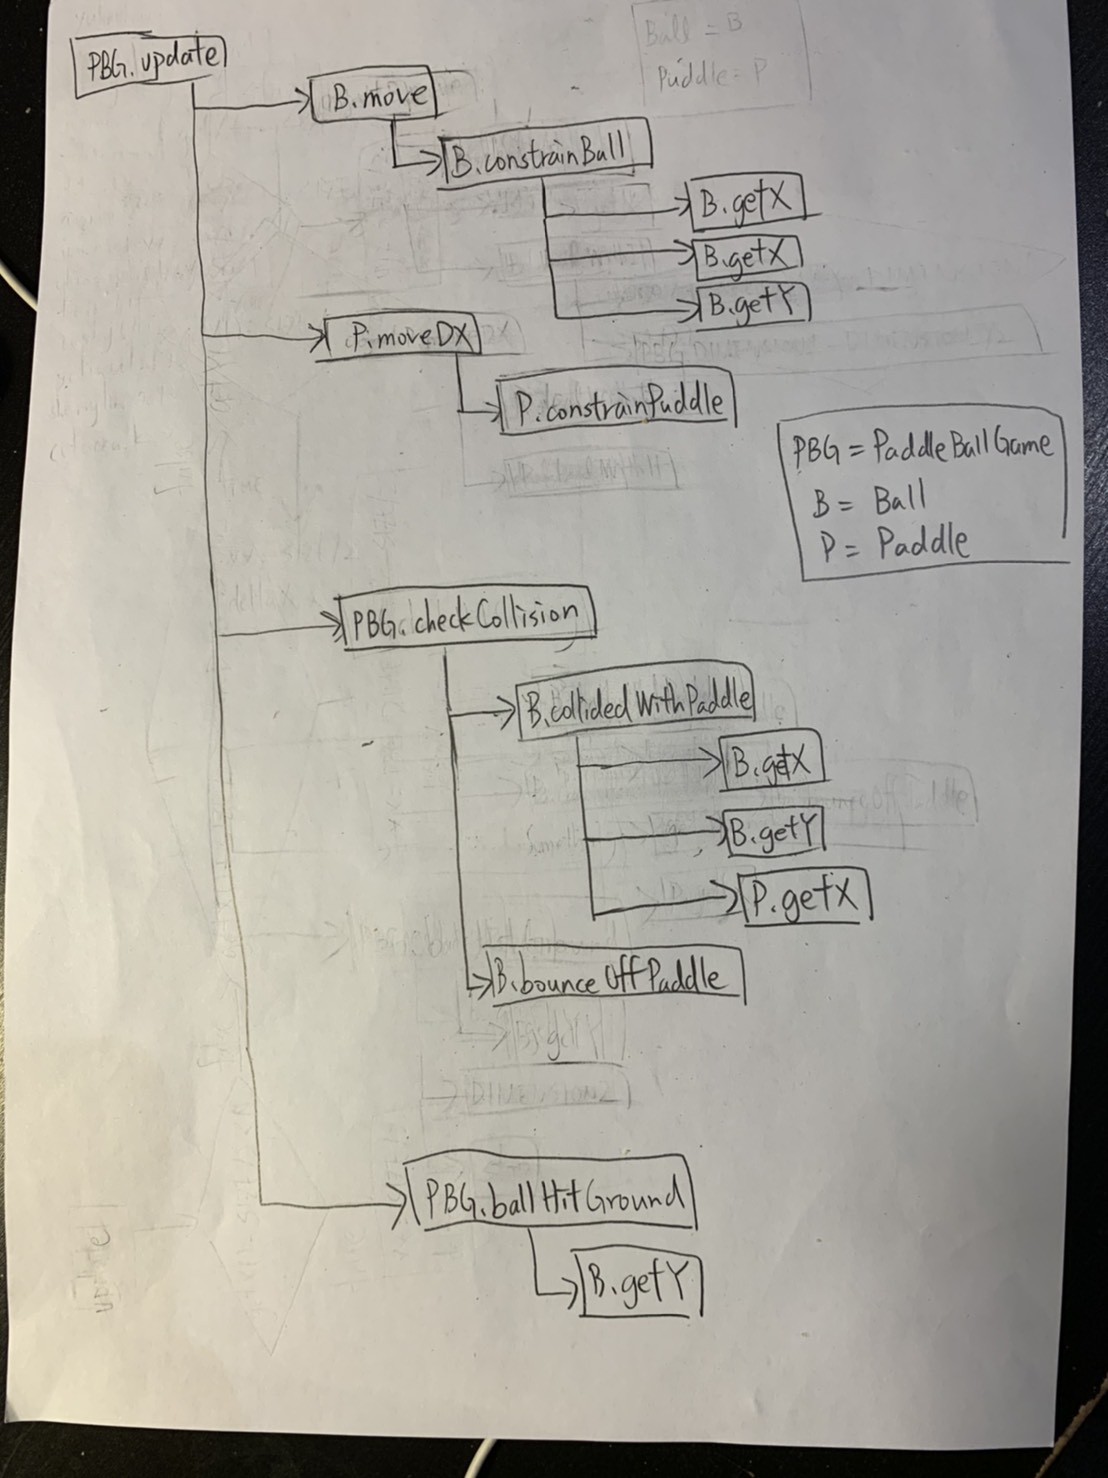 Ball = B
Puddle = P
PBG.update
B.move
B.constrainBall
B.getX
B.getX
B.getY
P.moveDX
P.constrainPuddle
PBG = PaddleBallGame
B = Ball
P = Paddle
PBG.checkCollision
B.collidedWithPaddle
B.getX
B.getY
P.getX
B.bounceOffPaddle
PBG.ballHitGround
B.getY
update